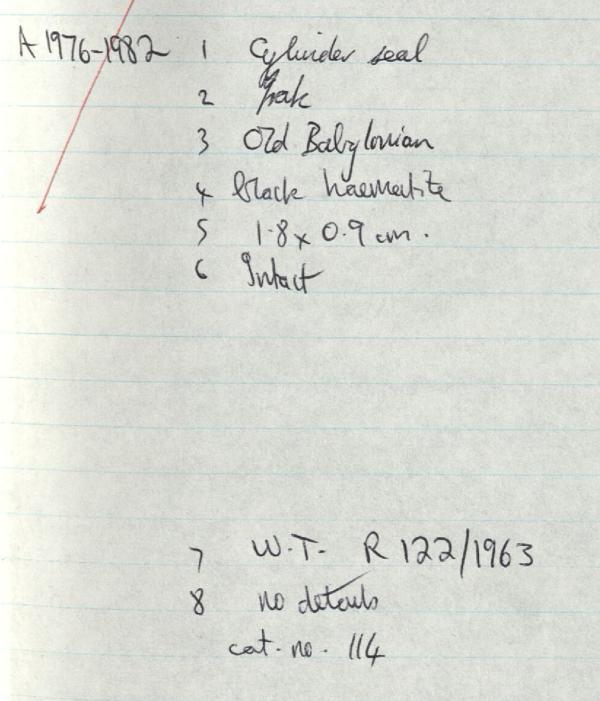 A 1976-1982 1 Cylinder seal
2 Irak
3 Old Babylonian
4 black haematite
5 1.8 x 0.9 cm.
6 Intact
7 W.T. R 122/1963
8 no details
cat. no. 114